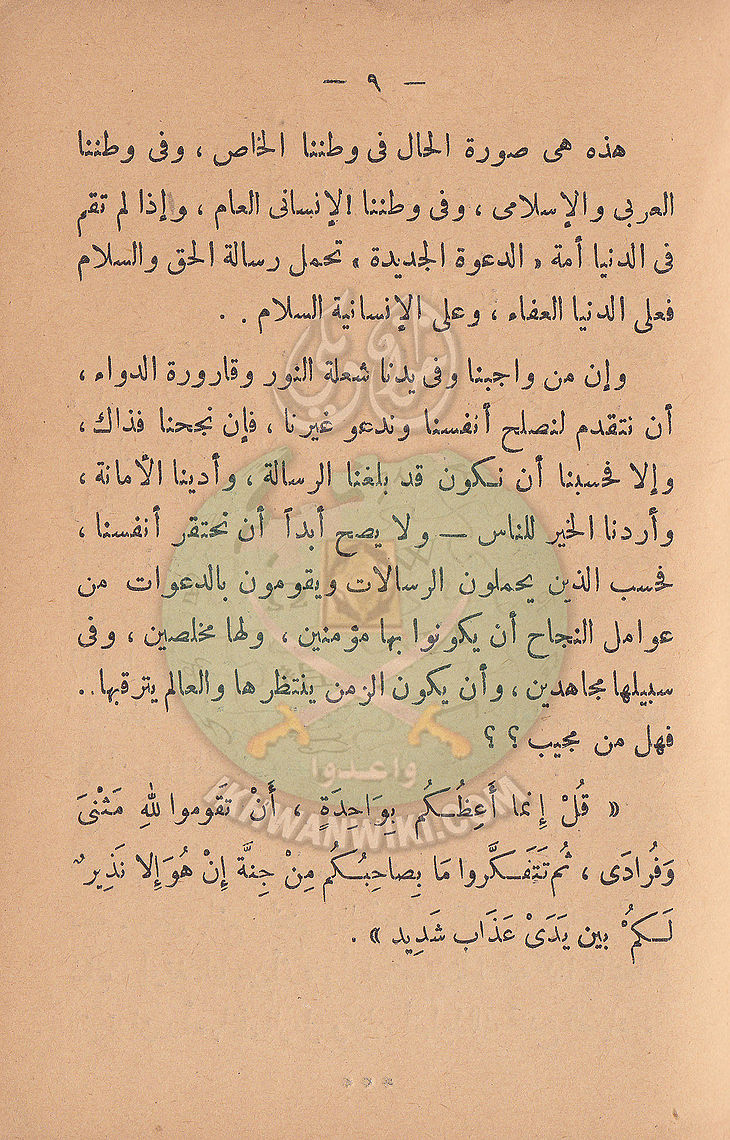 — ٩ —
هذه هى صورة الحال فى وطننا الخاص ، وفى وطننا
العربى والإسلامى ، وفى وطننا الإنسانى العام ، وإذا لم تقم
فى الدنيا أمة « الدعوة الجديدة » تحمل رسالة الحق والسلام
فعلى الدنيا العفاء ، وعلى الإنسانية السلام . .
وإن من واجبنا وفى يدنا شعلة النور وقارورة الدواء ،
أن نتقدم لنصلح أنفسنا وندعو غيرنا ، فإن نجحنا فذاك ،
وإلا فحسبنا أن نكون قد بلغنا الرسالة ، وأدينا الأمانة ،
وأردنا الخير للناس — ولا يصح أبداً أن نحتقر أنفسنا ،
فحسب الذين يحملون الرسالات ويقومون بالدعوات من
عوامل النجاح أن يكونوا بها مؤمنين ، ولها مخلصين ، وفى
سبيلها مجاهدين ، وأن يكون الزمن ينتظرها والعالم يترقبها . .
فهل من مجيب ؟ ؟
واعدوا
IKHWANWIKI.COM
« قُلْ إِنما أَعِظُكُم بِوَاحِدَةٍ ، أَنْ تقوموا للهِ مَثْنَىَ
وَفُرادَى ، ثُم تَتَفَكَّروا مَا بِصاحِبُكُم مِنْ جِنَّة إِنْ هُوَ إِلا نَذِيرٌ
لَكمُْ بين يَدَىْ عَذَاب شَدِيد » .
* * *